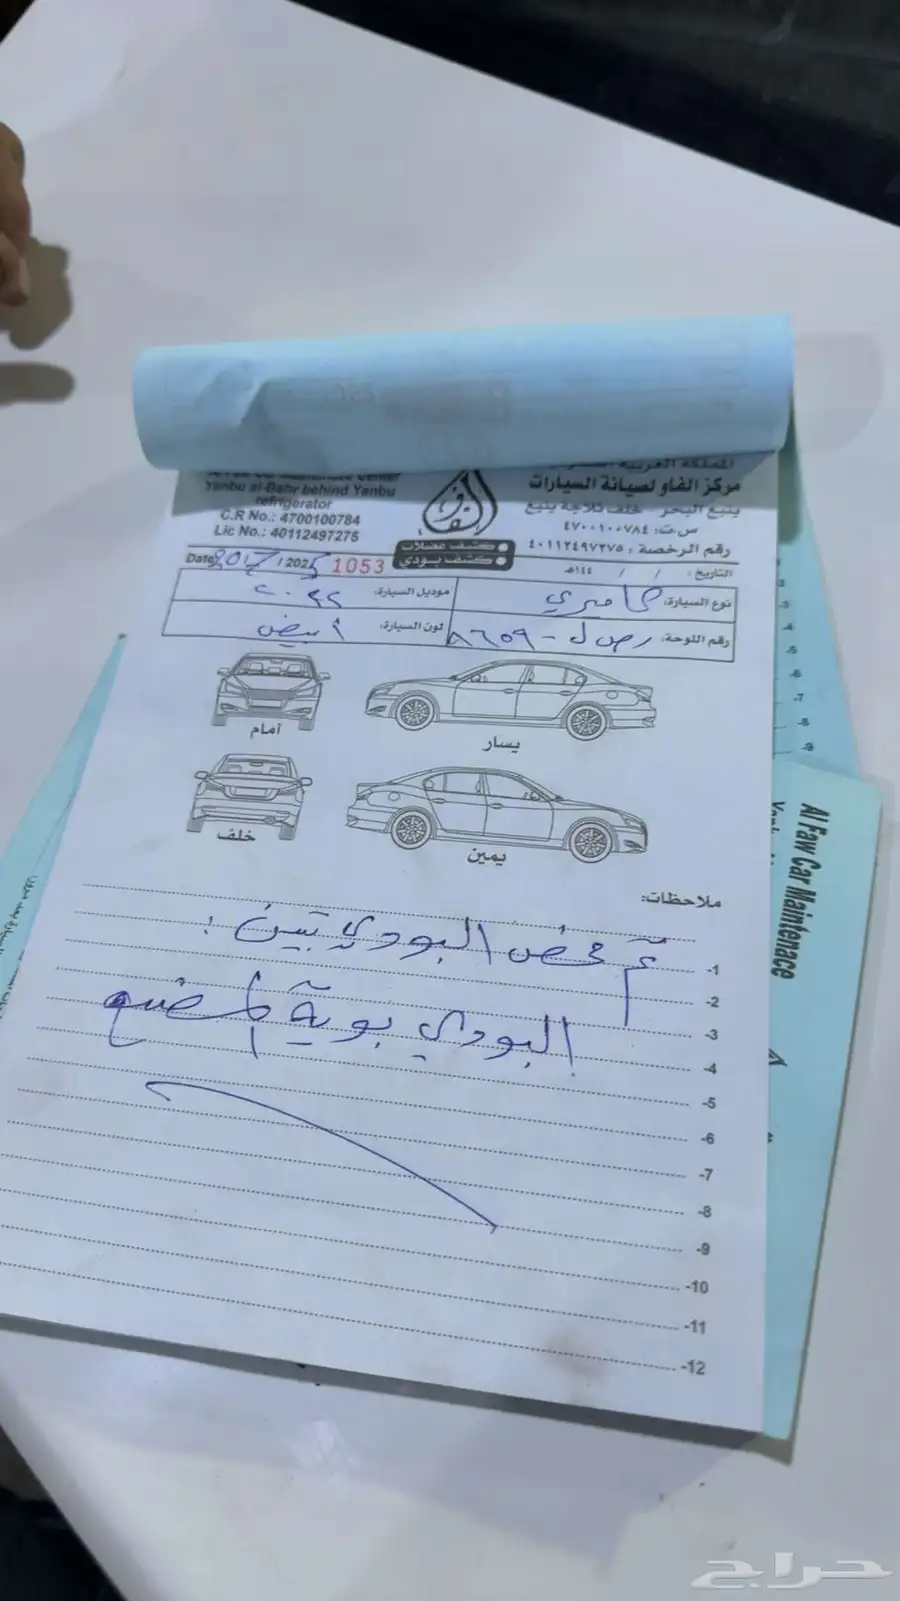 المملكة العربية
مركز الفاو لصيانة السيارات
ينبع البحر - خلف ثلاجة ينبع
س.ت: ٤٧٠٠١٠٠٧٨٤
رقم الرخصة : ٤٠١١٢٤٩٧٢٧٥
Yanbu al-Bahr behind Yanbu
refrigerator
C.R No.: 4700100784
Lic No.: 40112497275
الفاو
كشف عضلات
كشف بودي
التاريخ : / / ١٤٤هـ
1053
Date: 20/7/2025
نوع السيارة: كاميري
موديل السيارة: ٢٠٢٢
رقم اللوحة: رص ل - ٨٦٥٩
لون السيارة: أبيض
أمام
يسار
خلف
يمين
ملاحظات:
تم فحص البودي تبين :
البودي بوية المصنع
-1
-2
-3
-4
-5
-6
-7
-8
-9
-10
-11
-12
Al Faw Car Maintenace
حراج